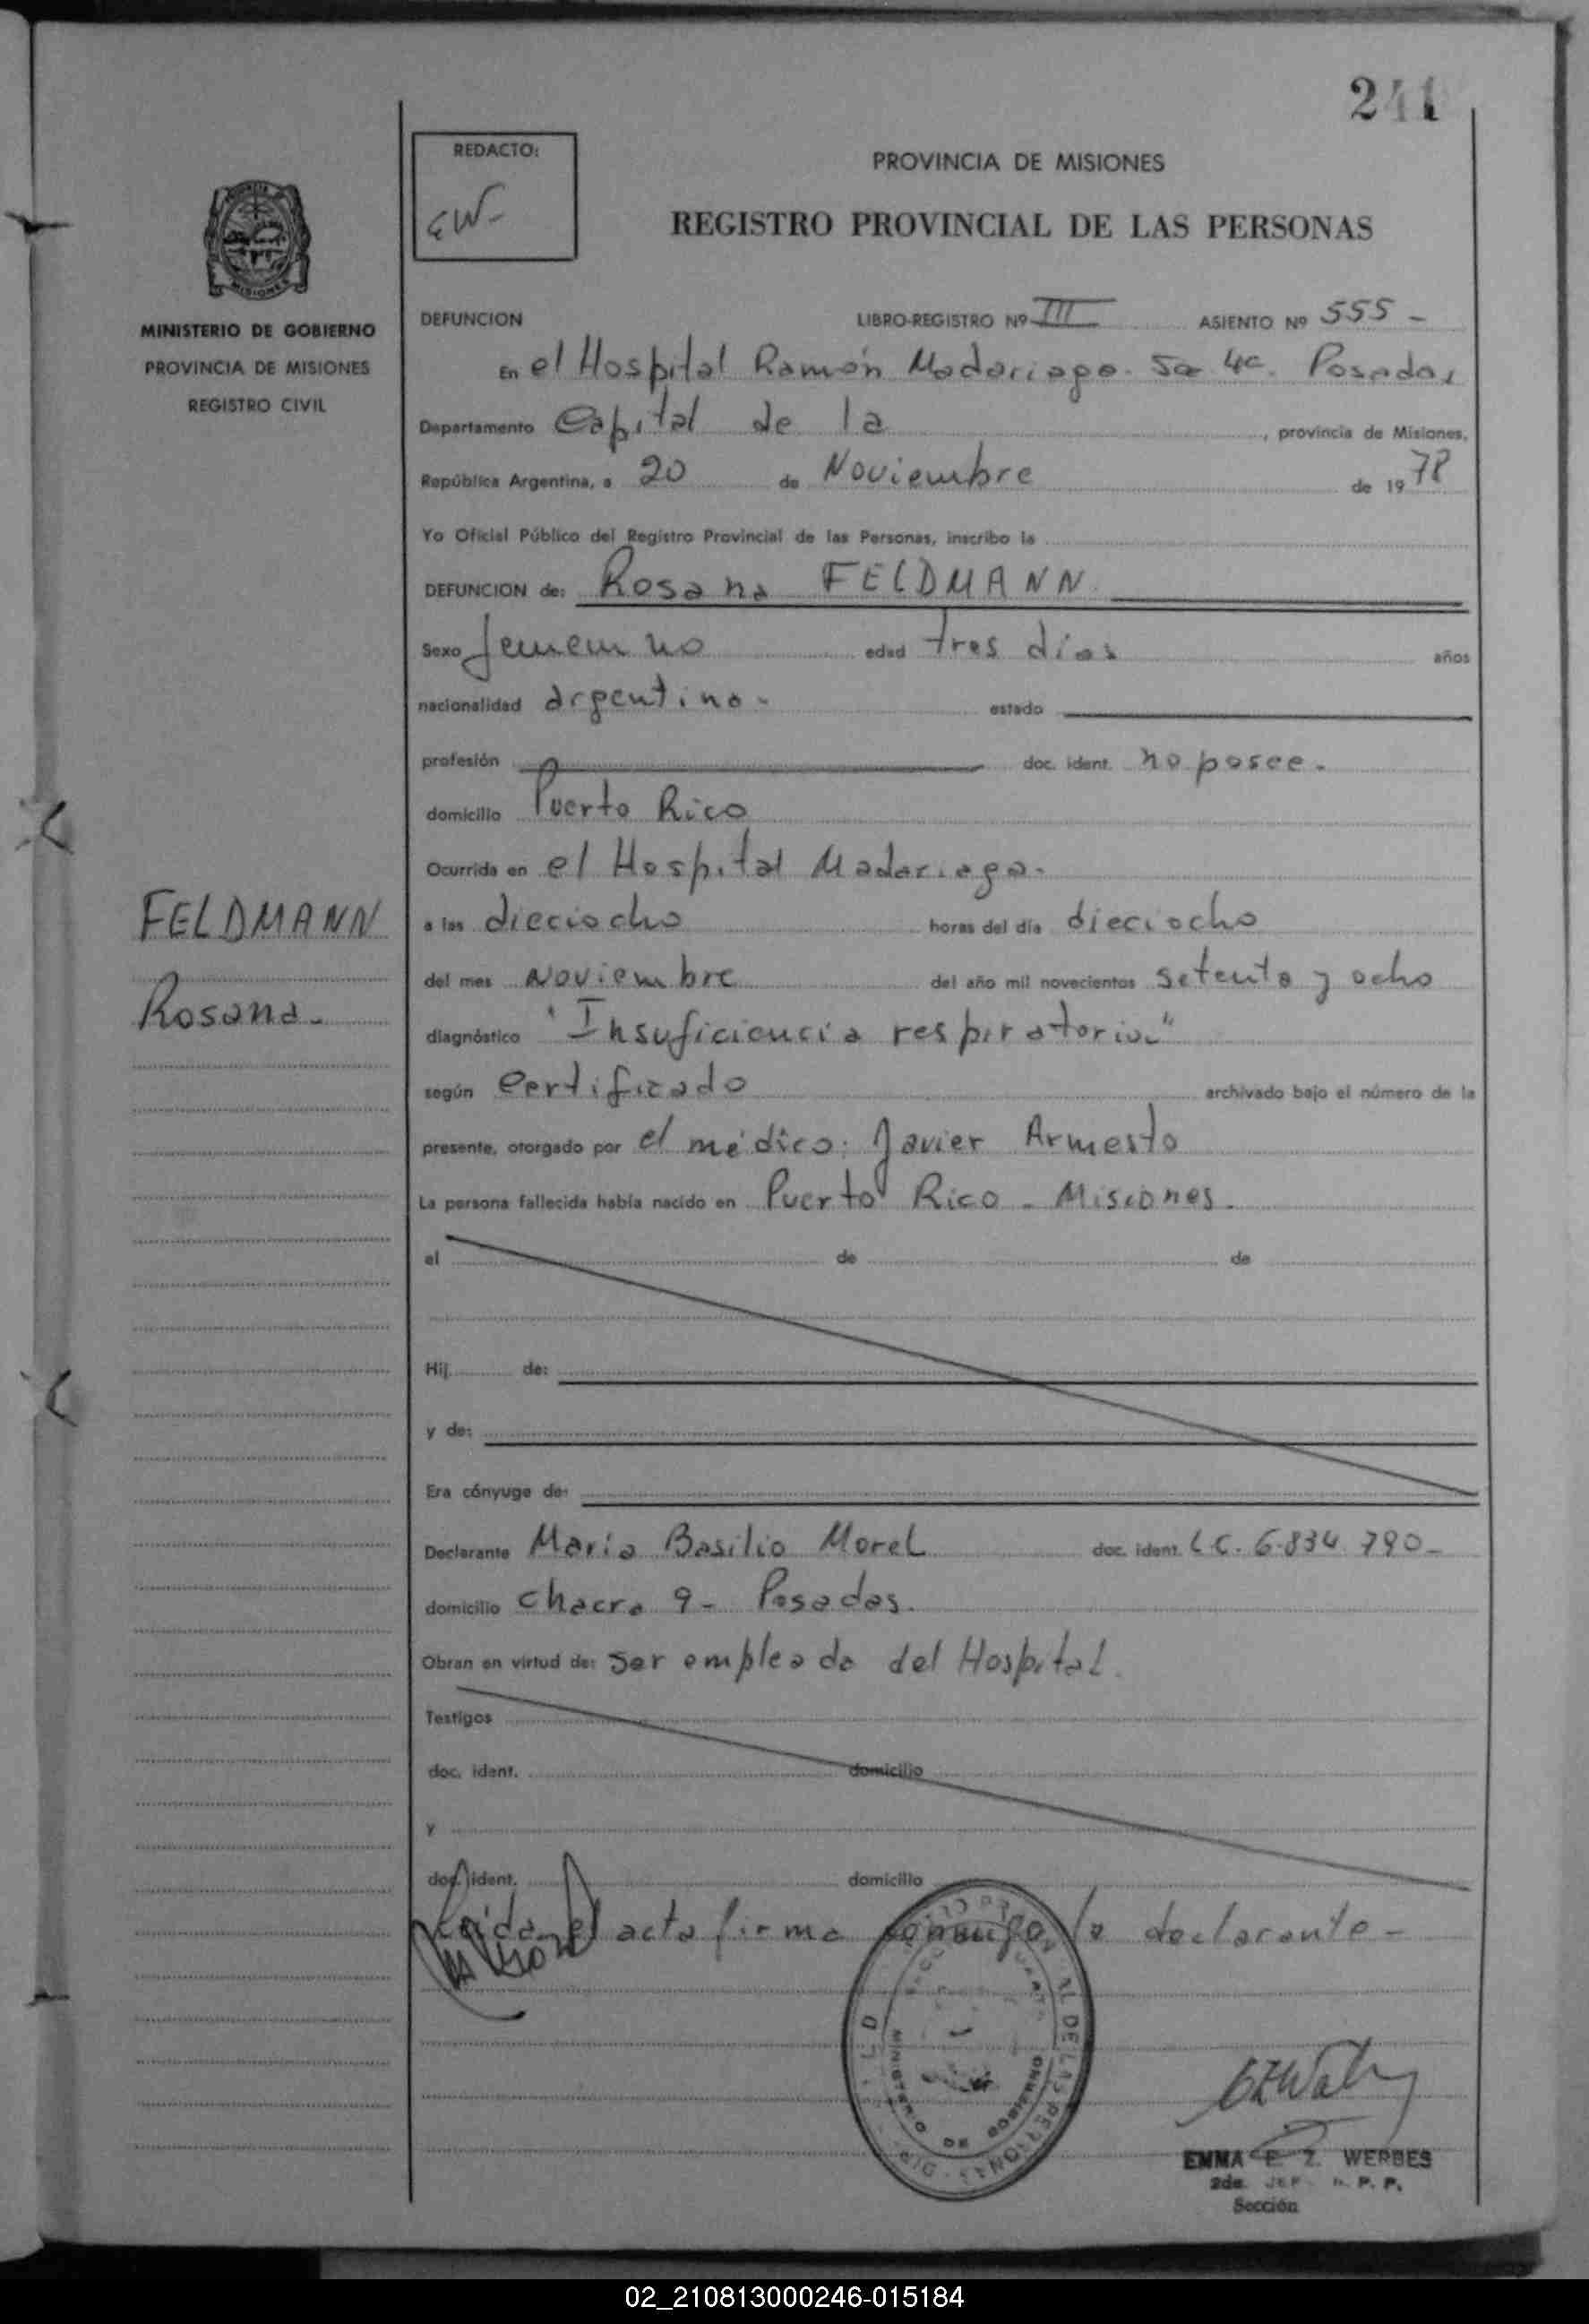 241
REDACTO:
EW-
PROVINCIA DE MISIONES
REGISTRO PROVINCIAL DE LAS PERSONAS
MISIONES
MINISTERIO DE GOBIERNO
PROVINCIA DE MISIONES
REGISTRO CIVIL
DEFUNCION LIBRO-REGISTRO Nº III ASIENTO Nº 555 -
En el Hospital Ramón Madariaga. Posadas
Departamento Capital de la , provincia de Misiones,
República Argentina, a 20 de Noviembre de 1978
Yo Oficial Público del Registro Provincial de las Personas, inscribo la
DEFUNCION de: Rosana FELDMANN
Sexo femenino edad tres días años
nacionalidad argentina - estado
profesión doc. ident. no posee.
domicilio Puerto Rico
Ocurrida en el Hospital Madariaga.
FELDMANN
Rosana -
a las dieciocho horas del día dieciocho
del mes Noviembre del año mil novecientos setenta y ocho
diagnóstico "Insuficiencia respiratoria"
según Certificado archivado bajo el número de la
presente, otorgado por el médico: Javier Armesto
La persona fallecida había nacido en Puerto Rico - Misiones.
el de de
Hij de:
y de:
Era cónyuge de:
Declarante María Basilio Morel doc. ident. LC. 6.834.790-
domicilio Chacra 9 - Posadas.
Obran en virtud de: ser empleada del Hospital.
Testigos
doc. ident. domicilio
y
doc. ident. domicilio
Leída el acta firma conmigo la declarante -
MINISTERIO DE GOBIERNO
EMMA E. Z. WERBES
2da. JEF. R. P. P.
Sección
02_210813000246-015184